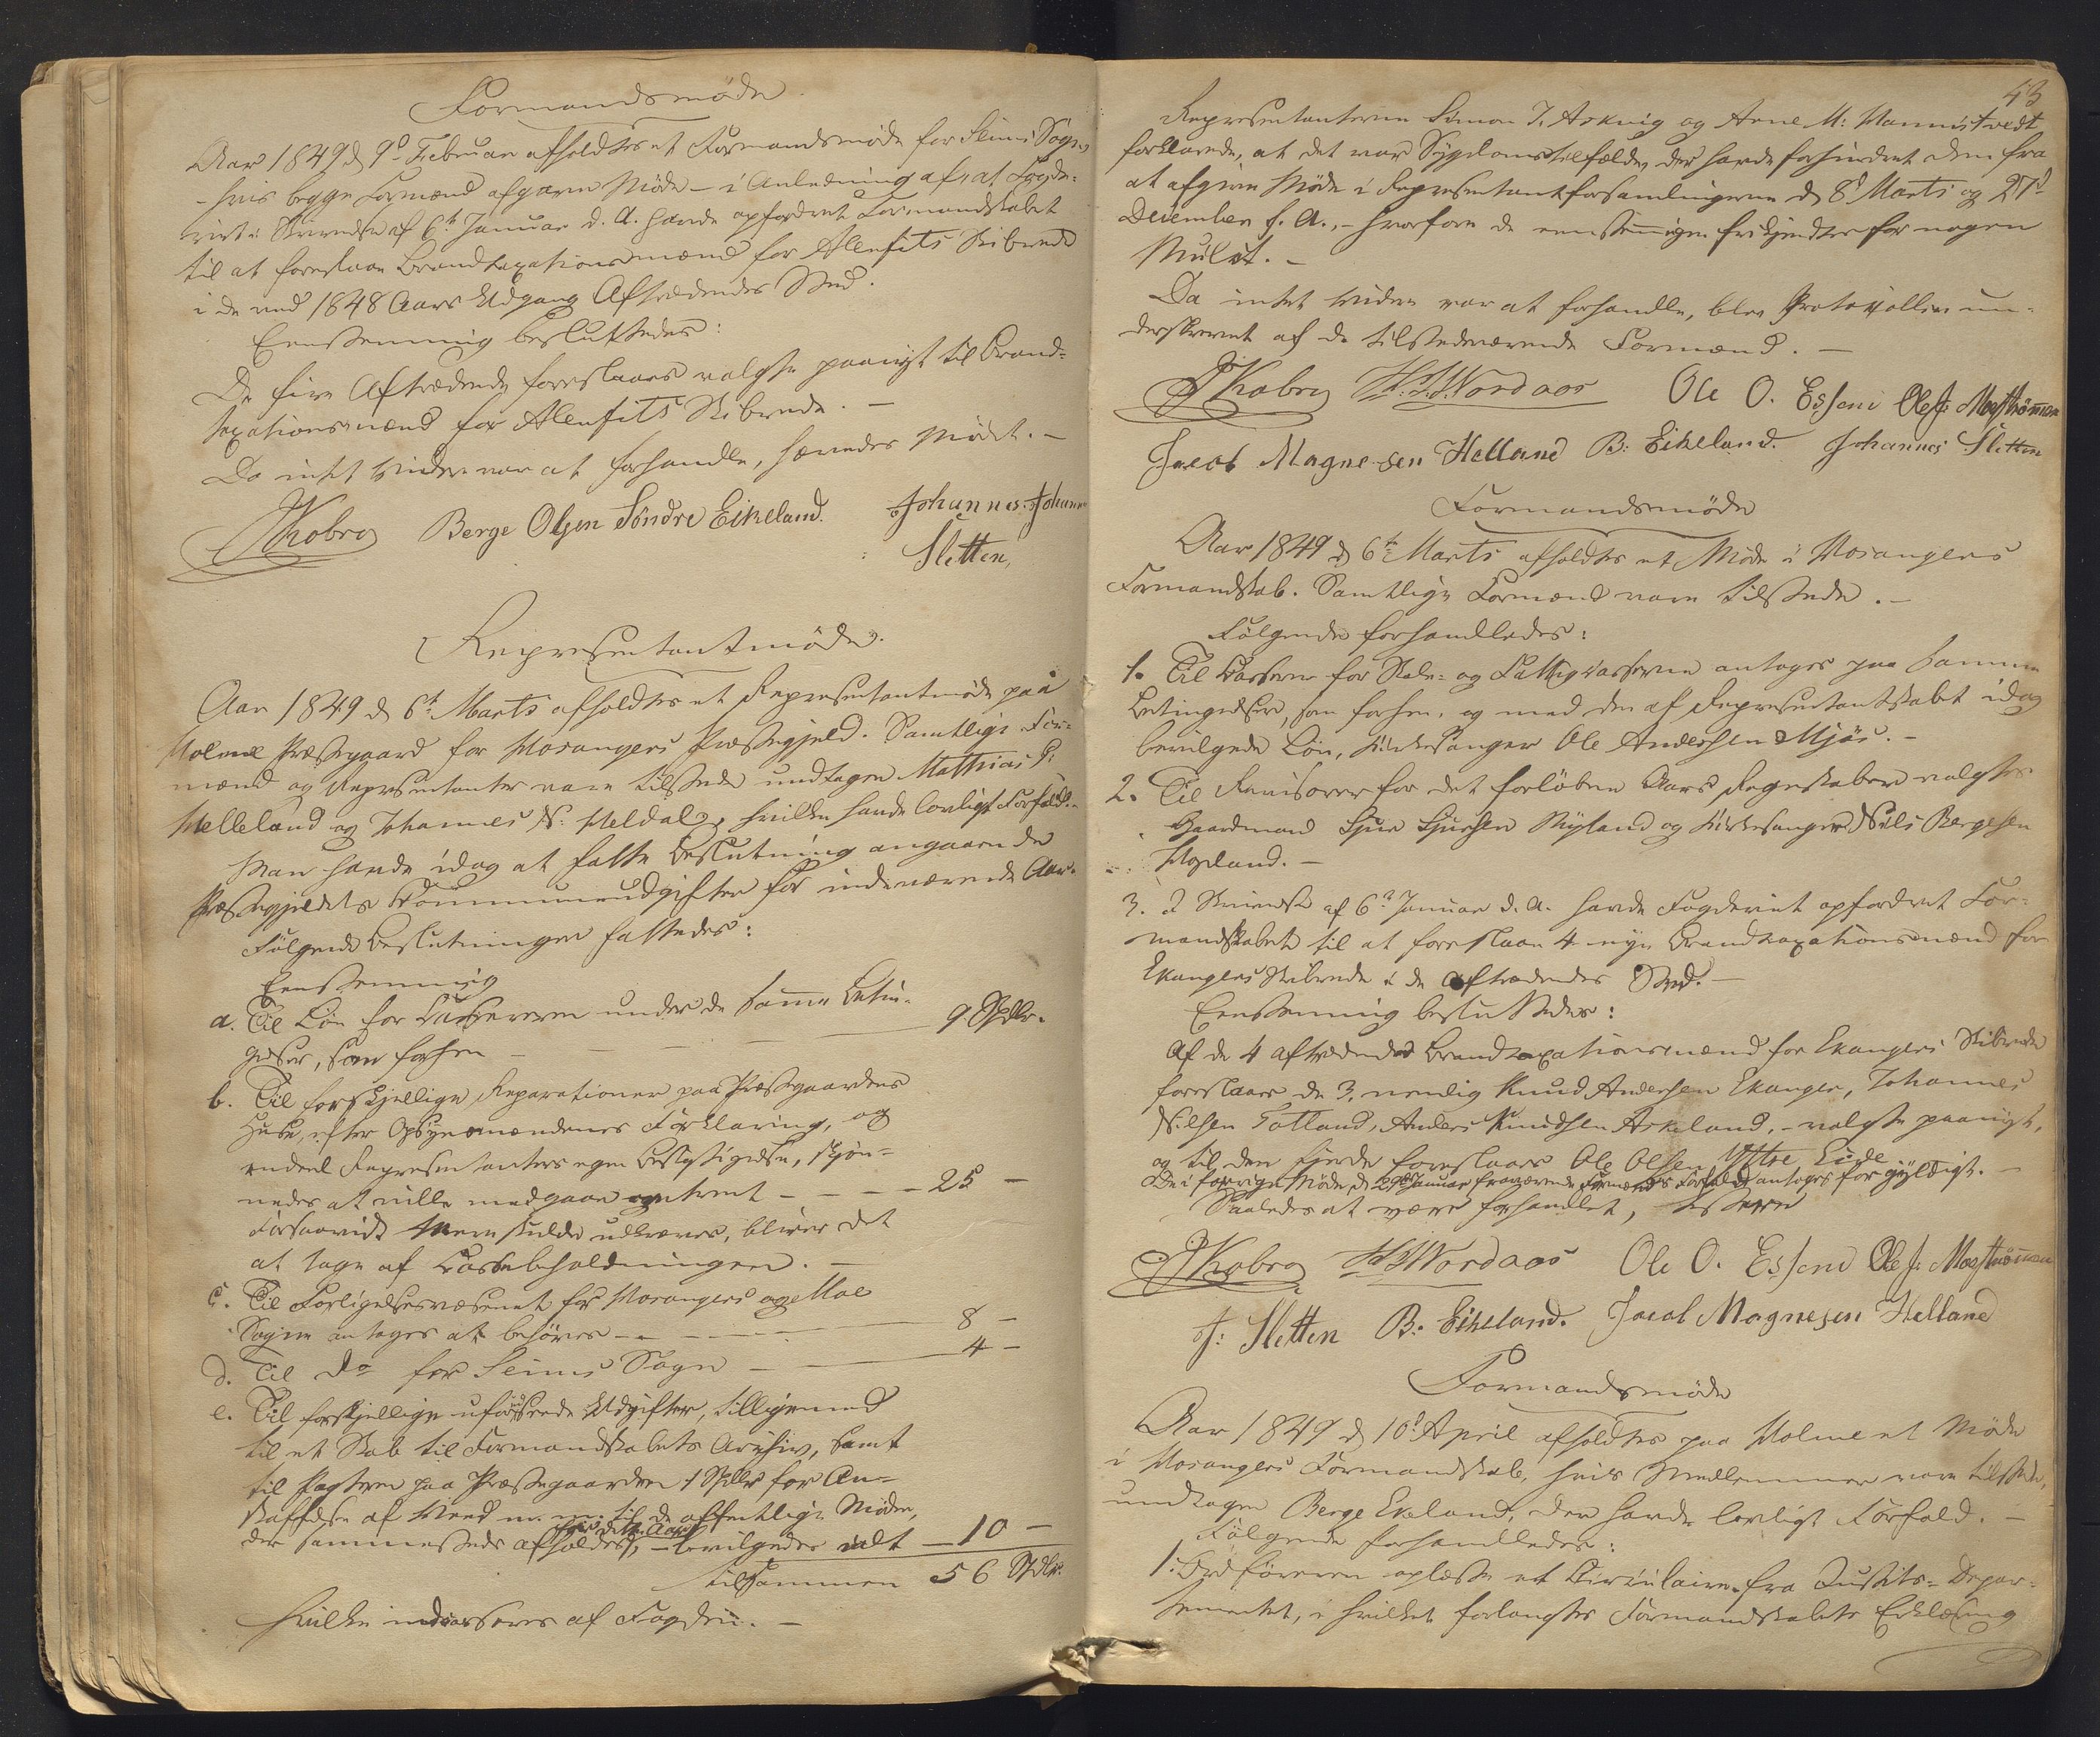 Formandsmøde
Aar 1849 d 9d Februar afholdtes et Formandsmøde for Seims Sogn,
- hvis begge Formænd afgave Møde - i Anledning af, at Fogde-
riet i Skrivelse af 6te Januar d. A. havde opfordret Formandskabet
til at foreslaae Brandtaxationsmænd for Alenfits Skibrede
i de ved 1848 Aars Udgang Aftrædendes Sted.
Eenstemmig besluttedes:
De fire Aftrædende foreslaaes valgte paanyt til Brand-
taxationsmænd for Alenfits Skibrede. -
Da intet videre var at forhandle, hævedes Mødet. -
JKobro Berge Olsen Søndre Eikeland. Johannes Johann
Sletten,
Representantmøde.
Aar 1849 d 6te Marts afholdtes et Representantmøde paa
Holme Præstegaard for Hosangers Præstegjeld. Samtlige For-
mænd og Representanter vare tilstede undtagen Matthias P:
Helleland og Johannes N: Heldal, hvilke havde lovligt Forfald. -
Man havde idag at fatte Beslutning angaaende
Præstegjeldets Kommuneudgifter for indeværende Aar.
Følgende Beslutninger fattedes:
Eenstemmig
a. Til Løn for Kassereren under de samme Betin-
gelser, som forhen - 9 Spdlr.
b. Til forskjellige Reparationer paa Præstegaardens
Huse, efter Opsynsmændenes Forklaring, og
endeel Representanters egen Besigtigelse, skjøn-
nedes at ville medgaae omtrent - - - - 25 -
Forsaavidt Mere skulde udkræves, bliver det
at tage af Kassebeholdningen. -
c. Til Forligelsesvæsenet for Hosangers og Moe
Sogne antages at behøves - - 8 -
d. Til do for Seims Sogn - 4 -
e. Til forskjellige uforudseede Udgifter, tilligemed
til et Skab til Formandskabets Archiv, samt
til Pagteren paa Præstegaarden 1 Spdlr for An-
skaffelse af Veed m. m. til de offentlige Møder,
der sammesteds afholdes, - bevilgedes ialt - 10 -
tilsammen 56 Spdlr.
hvilke indkasseres af Fogden. -
43
Representanterne Simon J. Askvig og Arne M: Mannistvedt
forklarede, at det var Sygdomstilfælde, der havde forhindret dem fra
at afgive Møde i Representantforsamlingerne d 8d Marts og 27d
December f. A., - hvorfore de eenstemmigen frikjendtes for nogen
Mulct. -
Da intet videre var at forhandle, blev Protocollen un-
derskrevet af de tilstedeværende Formænd. -
JKobro H.H.Nordaas Ole O. Essem Ole J: Mostrømmen
Jacob Magnesen Helland B: Eikeland. Johannes Sletten
Formandsmøde
Aar 1849 d 6te Marts afholdtes et Møde i Hosangers
Formandskab. Samtlige Formænd vare tilstede. -
Følgende forhandledes:
1. Til Kasserer for Skole- og Fattigkasserne antoges paa samme
Betingelser, som forhen, og med den af Representantskabet idag
bevilgede Løn, Kirkesanger Ole Andersen Mjøs. -
2. Til Revisorer for det forløbne Aars Regnskaber valgtes
Gaardmand Sjur Sjursen Myland og Kirkesanger Nils Bergesen
Hopland. -
3. I Skrivelse af 6te Januar d. A. havde Fogderiet opfordret For-
mandskabet til at foreslaae 4 nye Brandtaxationsmænd for
Ekangers Skibrede i de aftrædendes Sted. -
Eenstemmig besluttedes:
Af de 4 aftrædende Brandtaxationsmænd for Ekangers Skibrede
foreslaaes de 3, nemlig Knud Andersen Ekanger, Johannes
Nilsen Totland, Anders Knudsen Askeland, - valgte paanyt,
og til den fjerde foreslaaes Ole Olsen Yttre Eide
De i forrige Møde d 29de Januar fraværende Formænds Forfald antoges for gyldigt. -
Saaledes at være forhandlet, testerer
JKobro H.H.Nordaas Ole O. Essem Ole J: Mostrømmen
J: Sletten B: Eikeland. Jacob Magnesen Helland
Formandsmøde
Aar 1849 d 10d April afholdtes paa Holme et Møde
i Hosangers Formandskab, hvis Medlemmer vare tilstede,
undtagen Berge Ekeland, der havde lovligt Forfald. -
Følgende forhandledes:
1. Ordføreren oplæste et Circulaire fra Justits-Depar-
tementet, i hvilket forlangtes Formandskabets Erklæring